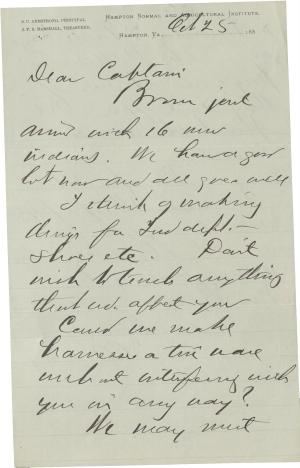 S. C. ARMSTRONG, PRINCIPAL. HAMPTON NORMAL AND AGRICULTURAL INSTITUTE.
J. F. B. MARSHALL, TREASURER.
HAMPTON, VA., Oct 25 188
Dear Captain
Brown just
arrived with 16 new
indians. We have a good
lot now and all goes well
I think of making
things for Ind dept. –
shoes etc. Don't
wish to touch anything
that wd. affect you
Could we make
harnesses or tin ware
without interfering with
you in any way?
We may not